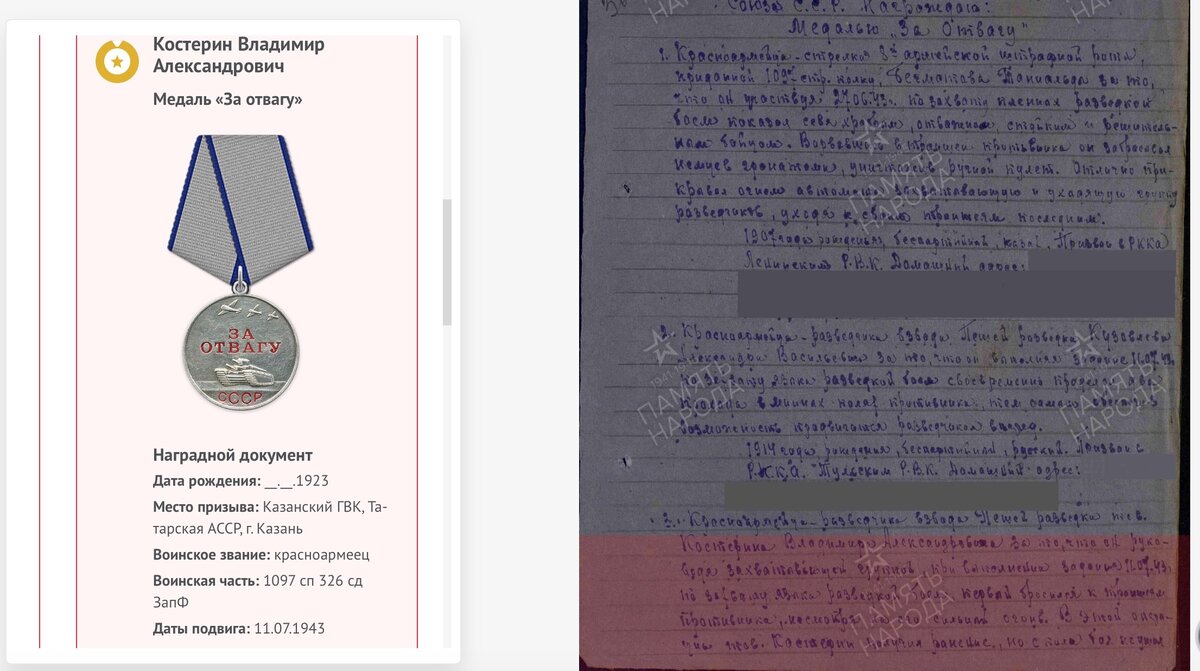 Костерин Владимир
Александрович
Медаль «За отвагу»
ЗА
ОТВАГУ
СССР
Наградной документ
Дата рождения: __.__.1923
Место призыва: Казанский ГВК, Та-
тарская АССР, г. Казань
Воинское звание: красноармеец
Воинская часть: 1097 сп 326 сд
ЗапФ
Даты подвига: 11.07.1943
Союза С.С.Р. Награждаю:
Медалью "За Отвагу"
1. Красноармейца-стрелка 8й армейской штрафной роты,
приданной стр. полку, за то,
что он участвуя 27.06.43г. по захвату пленных разведкой
боем показал себя храбрым, отважным, стойким и решитель-
ным бойцом. Ворвавшись в траншеи противника он забросал
немцев гранатами, уничтожив ручной пулет. Отлично при-
крывал огнем автомата захватывающую и уходящую группу
разведчиков, уходя к своим траншеям последним.
1907 года рождения, беспартийный, казах, Призван в РККА
Ленинским Р.В.К. Домашний адрес:
2. Красноармейца-разведчика взвода Пешей разведки
Александра Васильевича за то, что он выполняя задание 11.07.43г.
по захвату языка разведкой боем своевременно проделал два
прохода в минных полях противника, тем самым обеспечив
возможность продвигаться разведчикам вперед.
1914 года рождения, беспартийный, русский. Призван в
Р.К.К.А. Тульским Р.В.К. Домашний адрес:
3. Красноармейца-разведчика взвода Пешей разведки тов.
Костерина Владимира Александровича за то, что он руко-
водя захватывающей группой, при выполнении задания 11.07.43г.
по захвату языка разведкой боем первый бросился к траншеям
противника, несмотря на его сильный огонь. В этой опера-
ции тов. Костерин получил ранение, но с поля боя не ушел
ПАМЯТЬ
НАРОДА
ПАМЯТЬ
НАРОДА
ПАМЯТЬ
НАРОДА
ПАМЯТЬ
НАРОДА